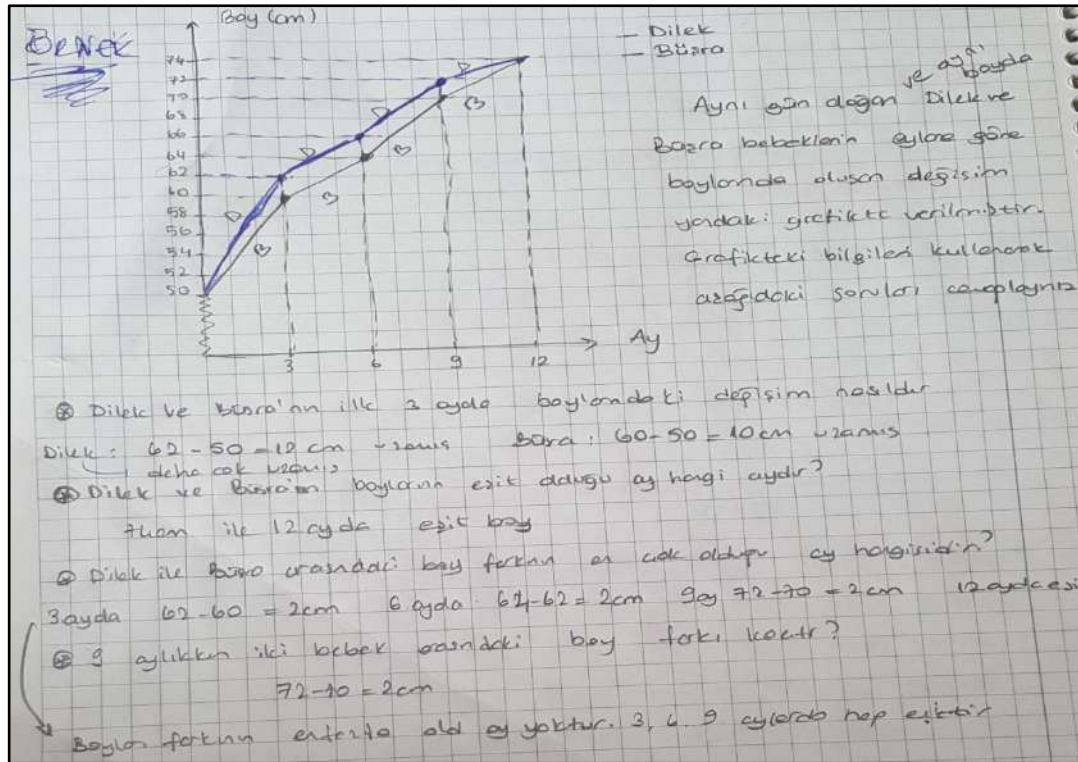 ÖRNEK
Boy (cm)
74
72
70
68
66
64
62
60
58
56
54
52
50
3
6
9
12
Ay
D
D
D
D
B
B
B
B
— Dilek
— Büşra
ve aynı boyda
Aynı gün doğan Dilek ve
Büşra bebeklerin aylara göre
boylarında oluşan değişim
yandaki grafikte verilmiştir.
Grafikteki bilgileri kullanarak
aşağıdaki soruları cevaplayınız
⊗ Dilek ve Büşra'nın ilk 3 ayda boylarındaki değişim nasıldır
Dilek: 62-50=12 cm uzamış Büşra: 60-50=10cm uzamış
daha çok uzamış
⊗ Dilek ve Büşra'nın boylarının eşit olduğu ay hangi aydır?
ile 12 ayda eşit boy
⊗ Dilek ile Büşra arasındaki boy farkının en çok olduğu ay hangisidir?
3 ayda 62-60 = 2cm 6 ayda 64-62 = 2cm 9 ay 72-70 = 2cm 12 ayda eşi
⊗ 9 aylıkken iki bebek arasındaki boy farkı kaçtır?
72-70 = 2cm
Boyları farkının old ay yoktur. 3, 6, 9 aylarda hep eşittir